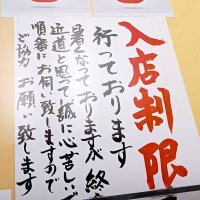 入店制限
行っております
暑くなっておりますが
近道と思って誠に心苦しい
順番にお伺い致しますので
ご協力お願い致します